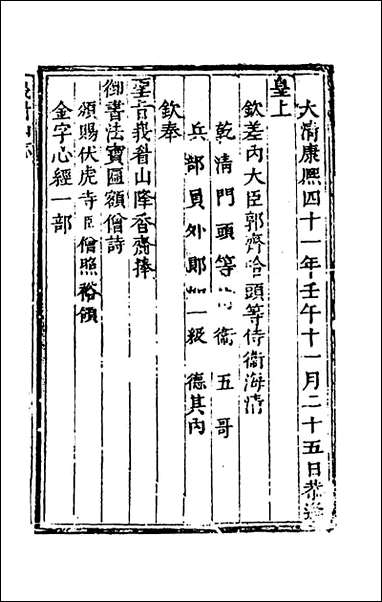 大清康熙四十一年壬午十一月二十五日恭逢
皇上
欽差內大臣郭齊哈頭等侍衛海清
乾清門頭等侍衛五哥
兵部員外郎加一級德其內
欽奉
聖旨峩眉山降香齋捧
御書法寶匾額僧詩
頒賜伏虎寺臣僧照裕領
金字心經一部